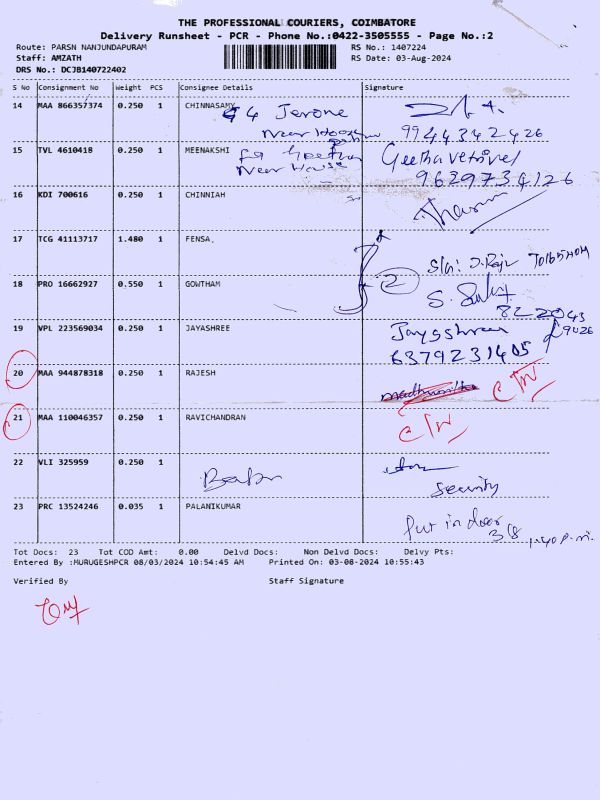 THE PROFESSIONAL COURIERS, COIMBATORE
Delivery Runsheet - PCR - Phone No.:0422-3505555 - Page No.:2
Route: PARSN NANJUNDAPURAM
RS No.: 1407224
Staff: AMZATH
RS Date: 03-Aug-2024
DRS No.: DCJB140722402
S No Consignment No Weight PCS Consignee Details Signature
14 MAA 866357374 0.250 1 CHINNASAMY
Jerone
9944342426
15 TVL 4610418 0.250 1 MEENAKSHI
Near House
Geethavetrivel
9629734126
16 KDI 700616 0.250 1 CHINNIAH
17 TCG 41113717 1.480 1 FENSA,
18 PRO 16662927 0.550 1 GOWTHAM
2
19 VPL 223569034 0.250 1 JAYASHREE
Jayashree
6379231405
20 MAA 944878318 0.250 1 RAJESH
21 MAA 110046357 0.250 1 RAVICHANDRAN
22 VLI 325959 0.250 1
Security
23 PRC 13524246 0.035 1 PALANIKUMAR
Put in door
3/8 1.40 p.m.
Tot Docs: 23 Tot COD Amt: 0.00 Delvd Docs: Non Delvd Docs: Delvy Pts:
Entered By :MURUGESHPCR 08/03/2024 10:54:45 AM Printed On: 03-08-2024 10:55:43
Verified By Staff Signature